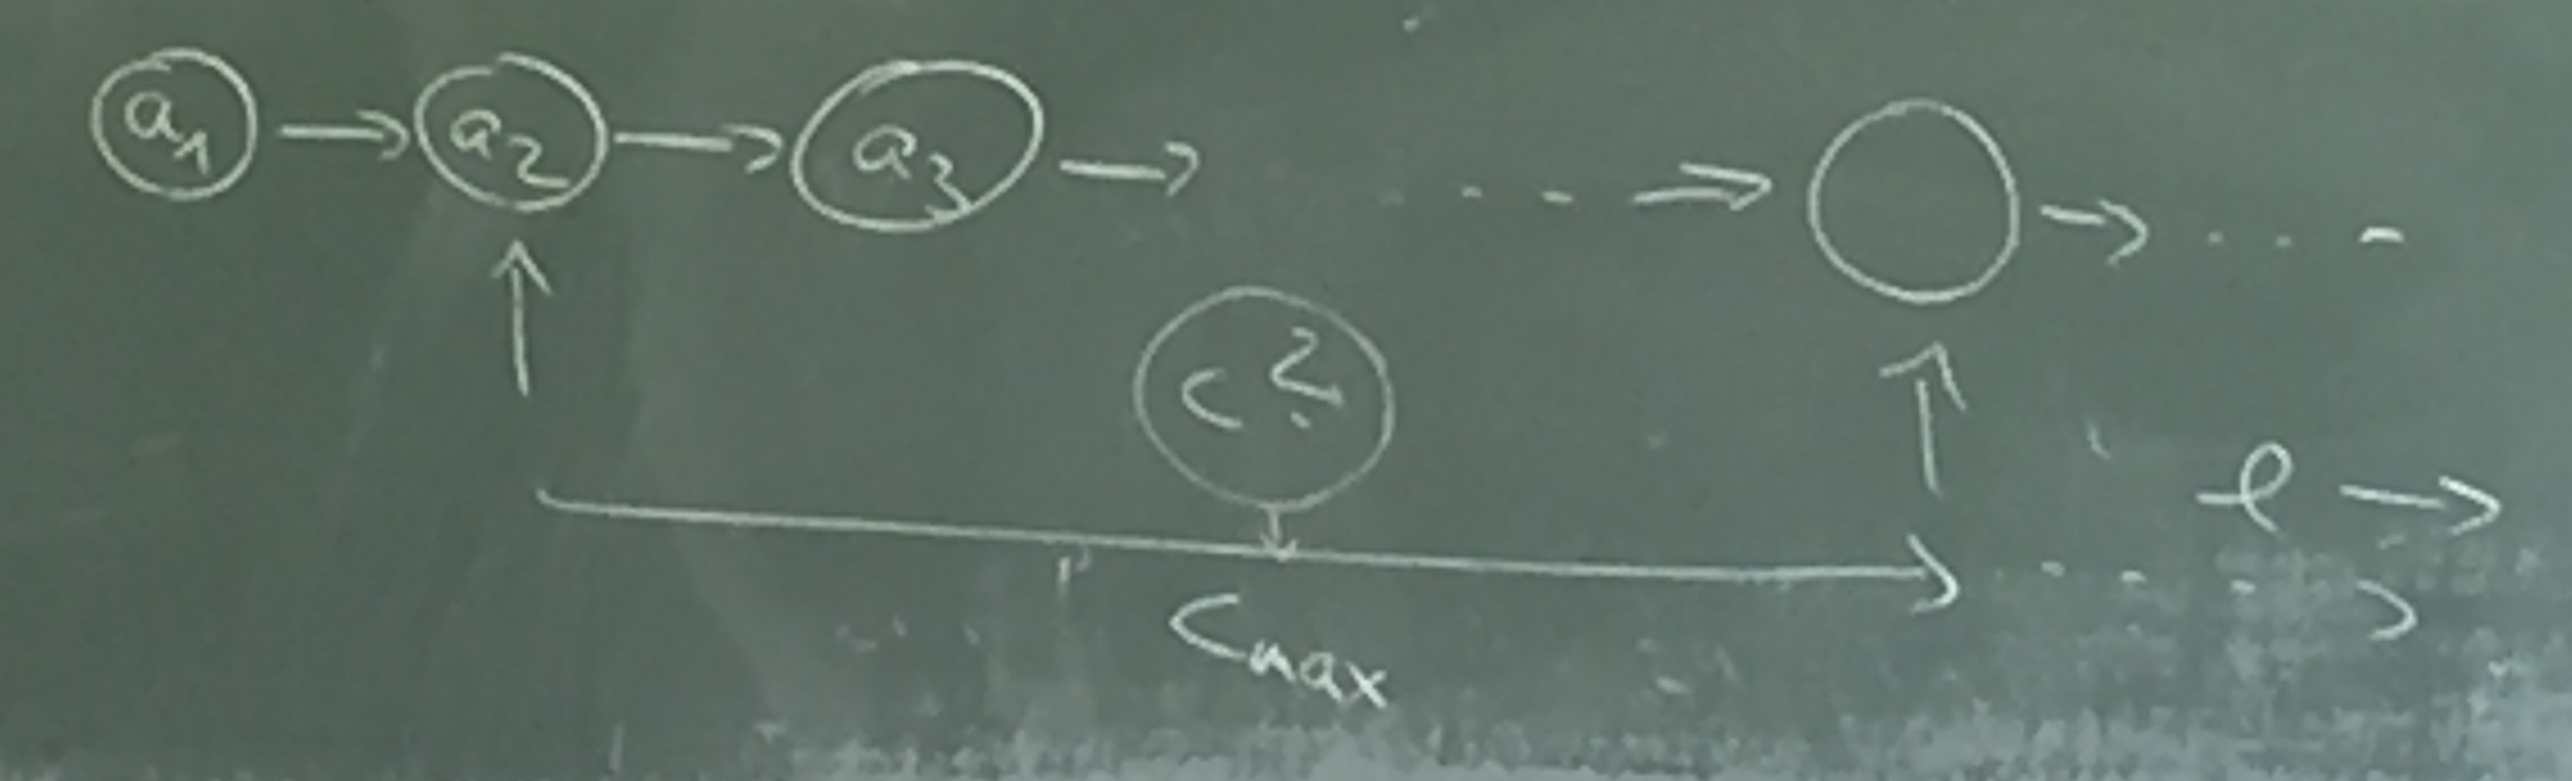 a₁ → a₂ → a₃ → . . . → → . . .
c ?
l →
C max